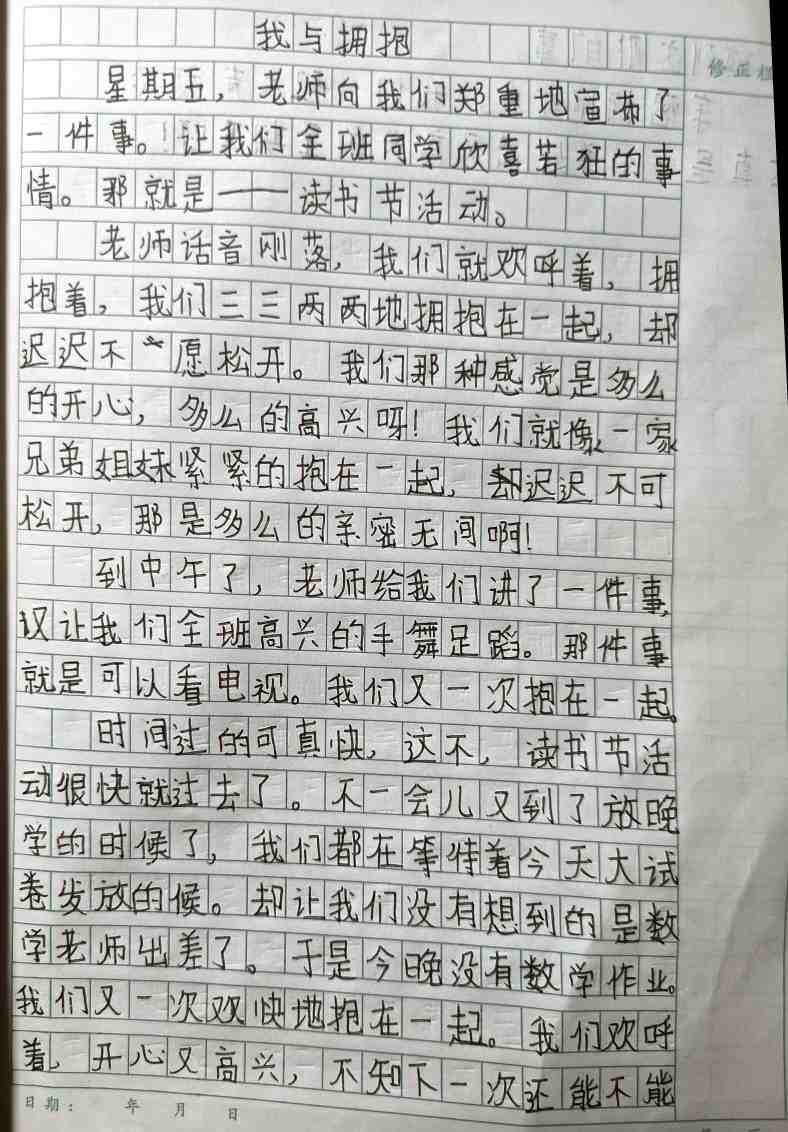 我与拥抱
修正栏
星期五，老师向我们郑重地宣布了
一件事。让我们全班同学欣喜若狂的事
情。那就是——读书节活动。
老师话音刚落，我们就欢呼着，拥
抱着，我们三三两两地拥抱在一起，却
迟迟不愿松开。我们那种感觉是多么
的开心，多么的高兴呀！我们就像一家
兄弟姐妹紧紧的抱在一起，却迟迟不可
松开，那是多么的亲密无间啊！
到中午了，老师给我们讲了一件事，
又让我们全班高兴的手舞足蹈。那件事
就是可以看电视。我们又一次抱在一起。
时间过的可真快，这不，读书节活
动很快就过去了。不一会儿又到了放晚
学的时候了，我们都在等待着今天大试
卷发放的候。却让我们没有想到的是数
学老师出差了。于是今晚没有数学作业。
我们又一次欢快地抱在一起。我们欢呼
着，开心又高兴，不知下一次还能不能
日期： 年 月 日